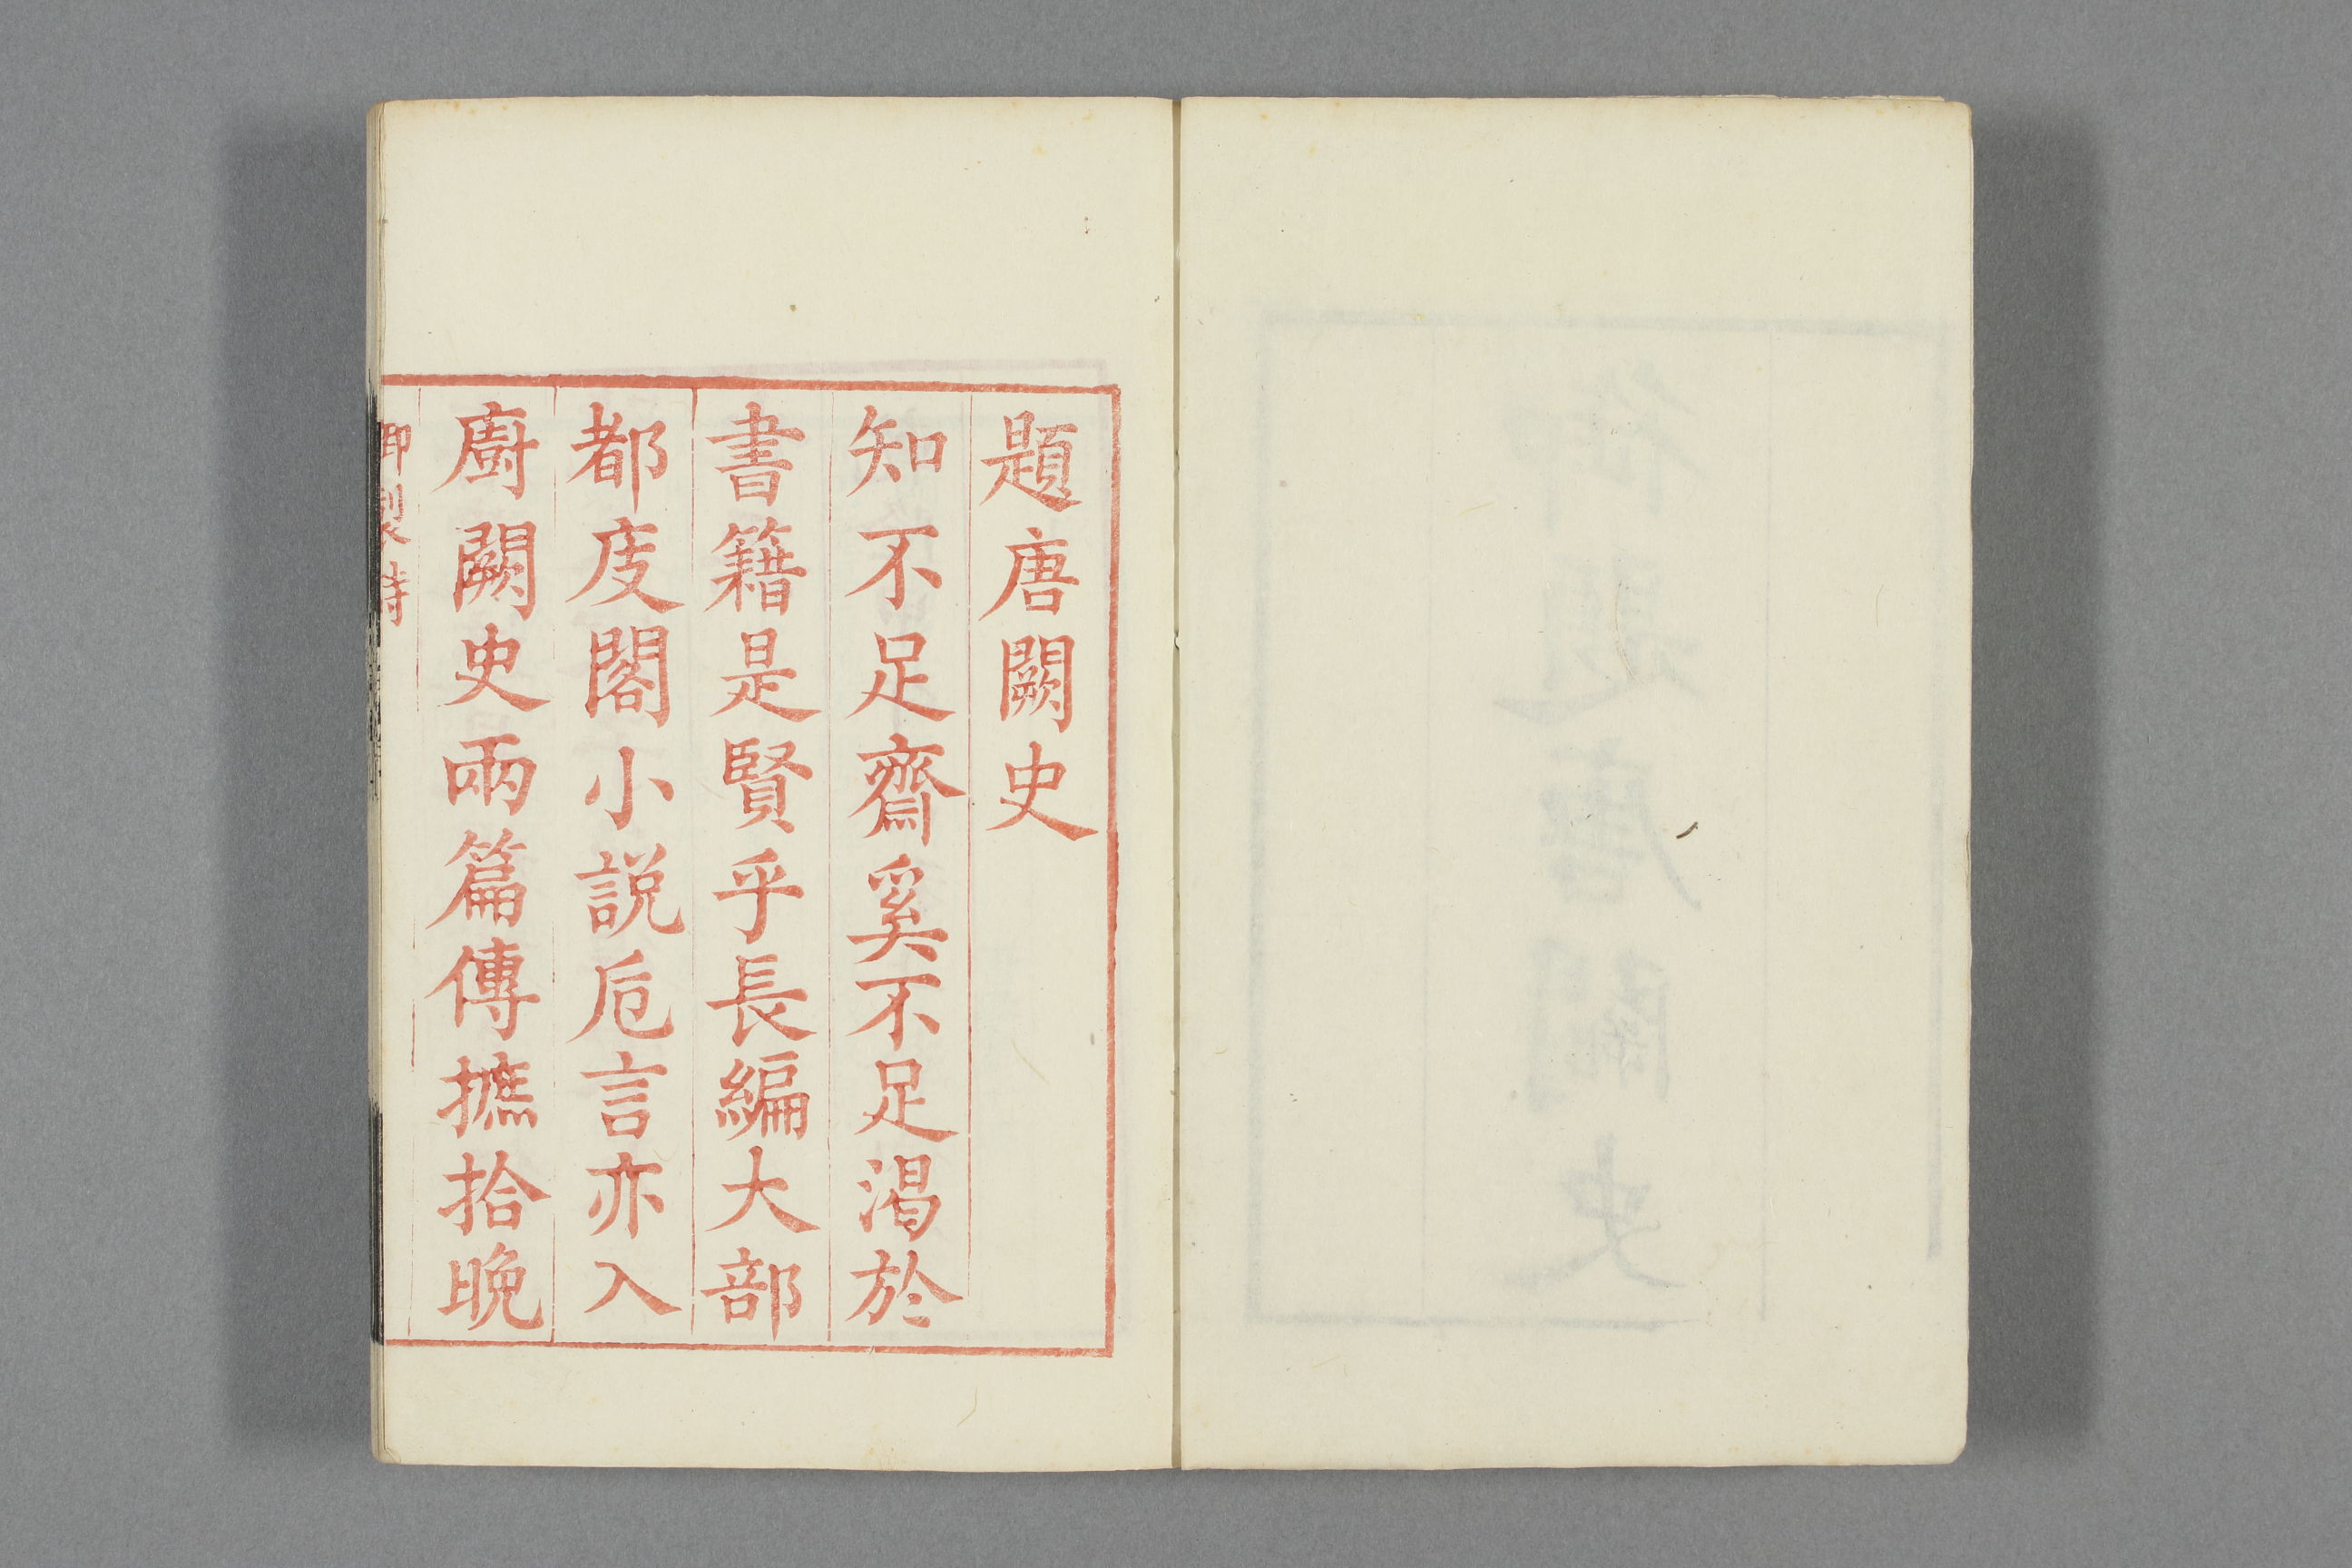 題唐闕史
知不足齋奚不足渴於
書籍是賢乎長編大部
都庋閣小說卮言亦入
廚闕史兩篇傳摭拾晚
御製詩